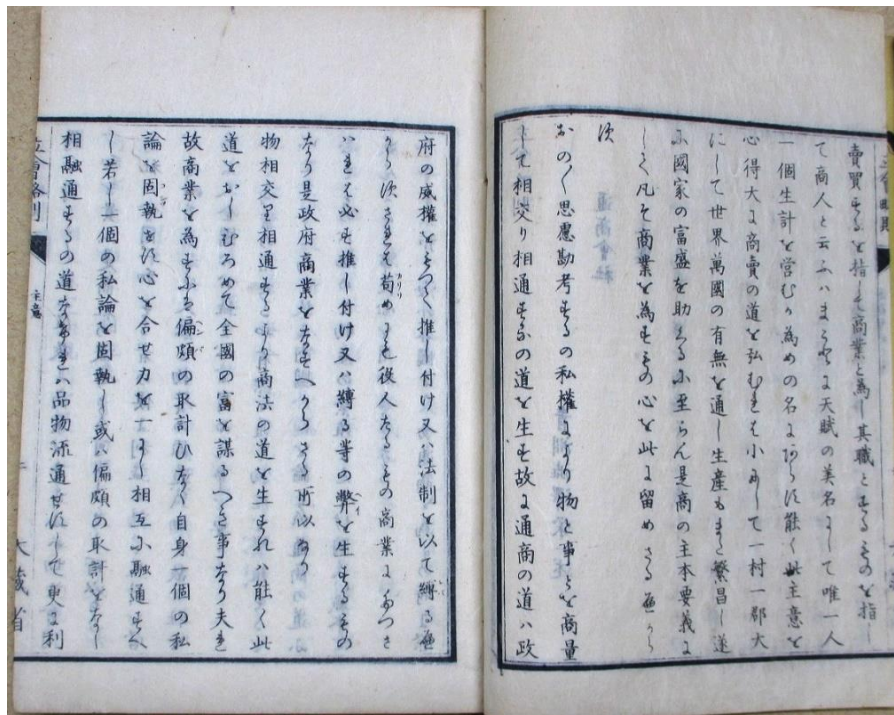 賣買するを指して商業と為し其職とするものを指し
て商人と云ふハまことに天賦の美名にして唯一人
一個生計を営むか為めの名にあらす能く此主意を
心得大に商賣の道を弘むれは小にして一村一郡大
にして世界萬國の有無を通し生産もまた繁昌し遂
に國家の富盛を助くるに至らん是商の主本要義に
して凡そ商業を為すもの心を此に留めさるへから
す
おの〱思慮勘考するの私權により物と事とを商量
して相交り相通するの道を生す故に通商の道ハ政
府の威權をもつて推し付け又ハ法制を以て縛るへ
からすされは苟めにも役人たるもの商業にたつさ
ハれは必す推し付け又ハ縛る等の弊を生するもの
なり是政府商業をなすへからさる所以なり
物相交り相通するより商法の道を生すれハ能く此
道をおしひろめて全國の富を謀るへき事なり夫れ
故商業を為すには偏頗の取計ひなく自身一個の私
論を固執せす心を合せ力を一にし相互に融通すへ
し若し一個の私論を固執し或ハ偏頗の取計をなし
相融通するの道なけれハ品物流通せすして更に利
立會略則
主意
大蔵省